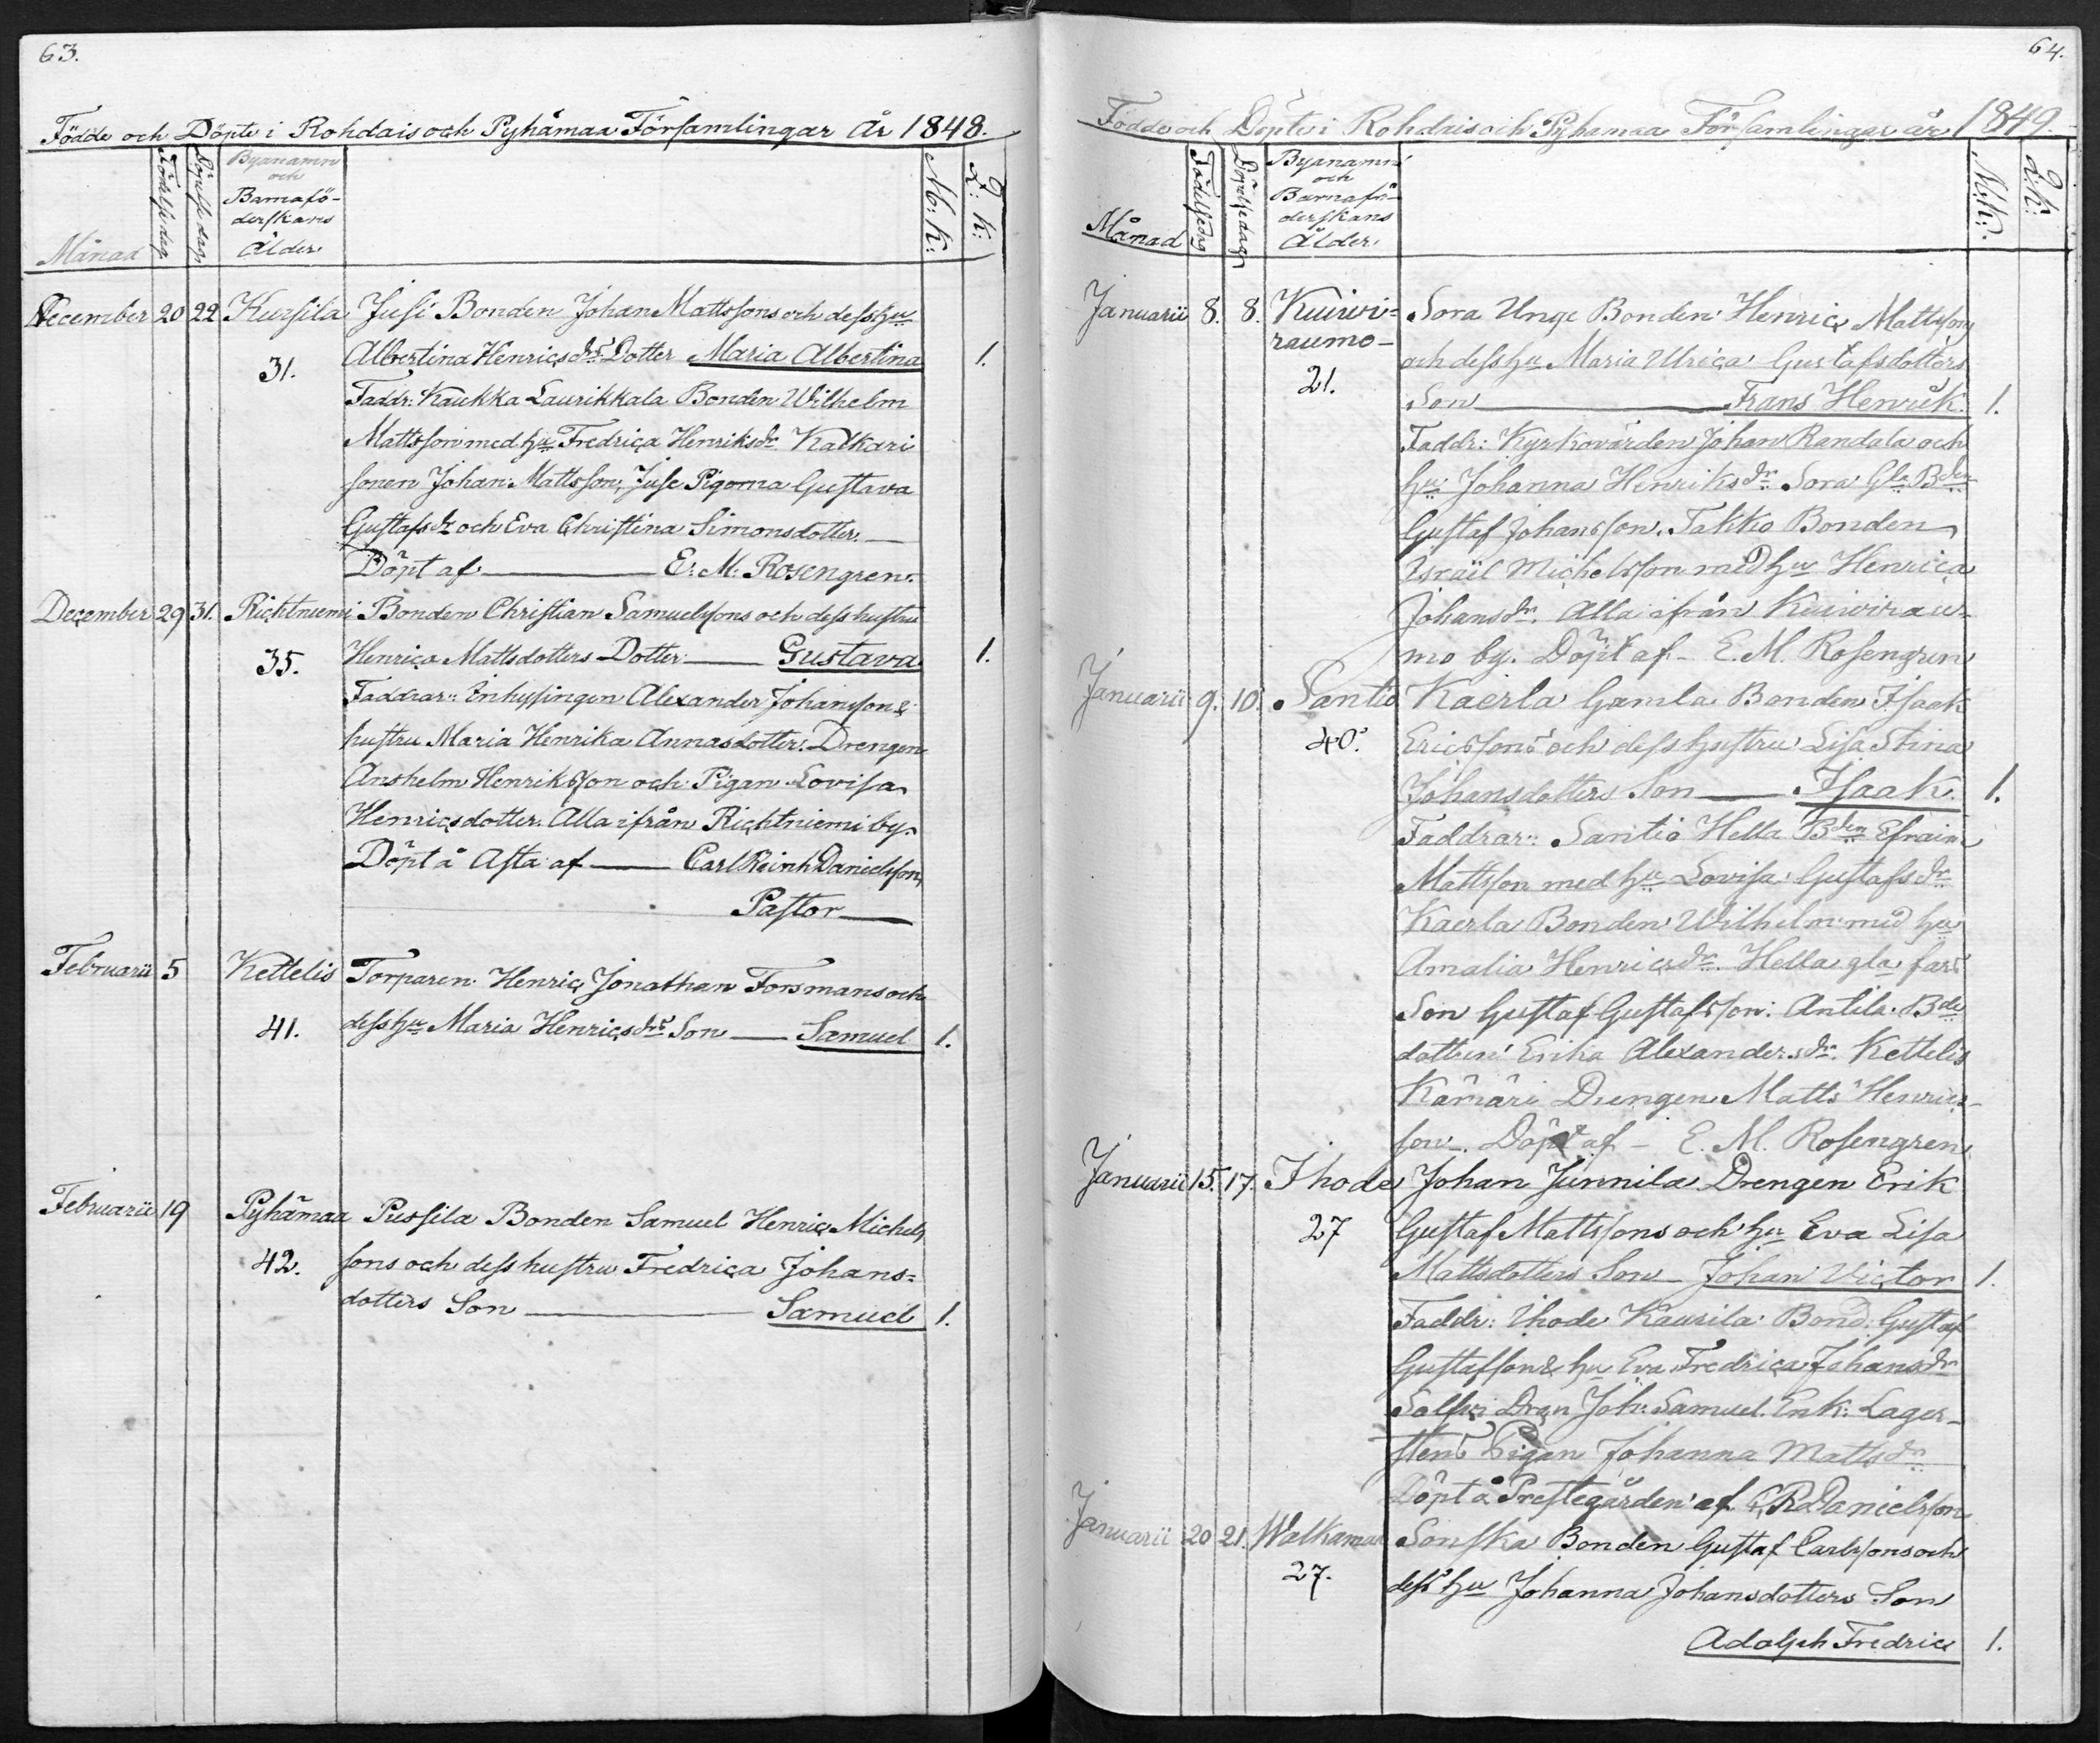 63.
Födde och Döpte i Rohdais och Pyhämaa Församlingar År 1848.
Månad
Födelsedag
Döpelsedag
Byanamn
och
Barnafö-
derskans
Ålder.
M: K:
Q: K:
December 20 22 Kursila Jusi Bonden Johan Mattssons och dess hu
31. Albertina Henricsdrs Dotter Maria Albertina 1.
Faddr: Kaukka Laurikkala Bonden Wilhelm
Mattsson med hu Fredrica Henriksdr. Kalkari
sonen Johan Mattsson, Juse Pigorna Gustava
Gustafsdr och Eva Christina Simonsdotter.
Döpt af E: M: Rosengren.
December 29 31. Richtniemi Bonden Christian Samuelssons och dess hustru
35. Henrica Mattsdotters Dotter Gustava 1.
Faddrar: Inhysingen Alexander Johansson &
hustru Maria Henrika Annasdotter. Drengen
Anshelm Henriksson och Pigan Lovisa
Henricsdotter. Alla ifrån Richtniemi by.
Döpt å Asta af Carl Reinh Danielsson,
Pastor
Februarii 5 Kettelis Torparen Henric Jonathan Forsmans och
41. dess hu Maria Henricsdrs Son Samuel 1.
Februarii 19 Pyhämaa Pussila Bonden Samuel Henric Michels
42. sons och dess hustru Fredrica Johans=
dotters Son Samuel 1.
64.
Födde och Döpte i Rohdais och Pyhämaa Församlingar år 1849.
Månad
Födelsedag
Döpelsedag
Byanamn
och
Barnafö-
derskans
Ålder.
M: K:
Q: K:
Januarii 8. 8. Kuiwi= Sora Unge Bonden Henric Mattssons
raumo- och dess hu Maria Ulrica Gustafsdotters
21. Son Frans Henrik. 1.
Faddr: Kyrkovärden Johan Randala och
hu Johanna Henriksdr Sora Gla Bden
Gustaf Johansson. Tahko Bonden
Israël Michelsson med hu Henrica
Johansdr. Alla ifrån Kuiwirau-
mo by. Döpt af - E. M. Rosengren
Januarii 9. 10. Santio Kaerla Gamla Bonden Isaak
40. Ericssons och dess hustru Lisa Stina
Johansdotters Son Isaak. 1.
Faddrar: Santio Hella Bden Efraim
Mattsson med hu Lovisa Gustafsdr
Kaerla Bonden Wilhelm med hu
Amalia Henricsdr. Hella gla fars
Son Gustaf Gustafsson. Antila Bde
dottern Erika Alexandersdr. Kettelis
Kämäri Drengen Matts Henrics-
son. Döpt af - E. M. Rosengren
Januarii 15. 17. Ihode Johan Junnila Drengen Erik
27 Gustaf Mattssons och hu Eva Lisa
Mattsdotters Son Johan Victor 1.
Faddr: Ihode Kaurila Bond. Gustaf
Gustafsson & hu Eva Fredrica Johansdr
Drgn Joh: Samuel. Enk: Lager-
stens Pigan Johanna Mattsdr
Döpt å Prestegården af C. R. Danielsson
Januarii 20 21. Walkamaa Sonska Bonden Gustaf Carlssons och
27. dess hu Johanna Johansdotters Son
Adolph Fredric 1.